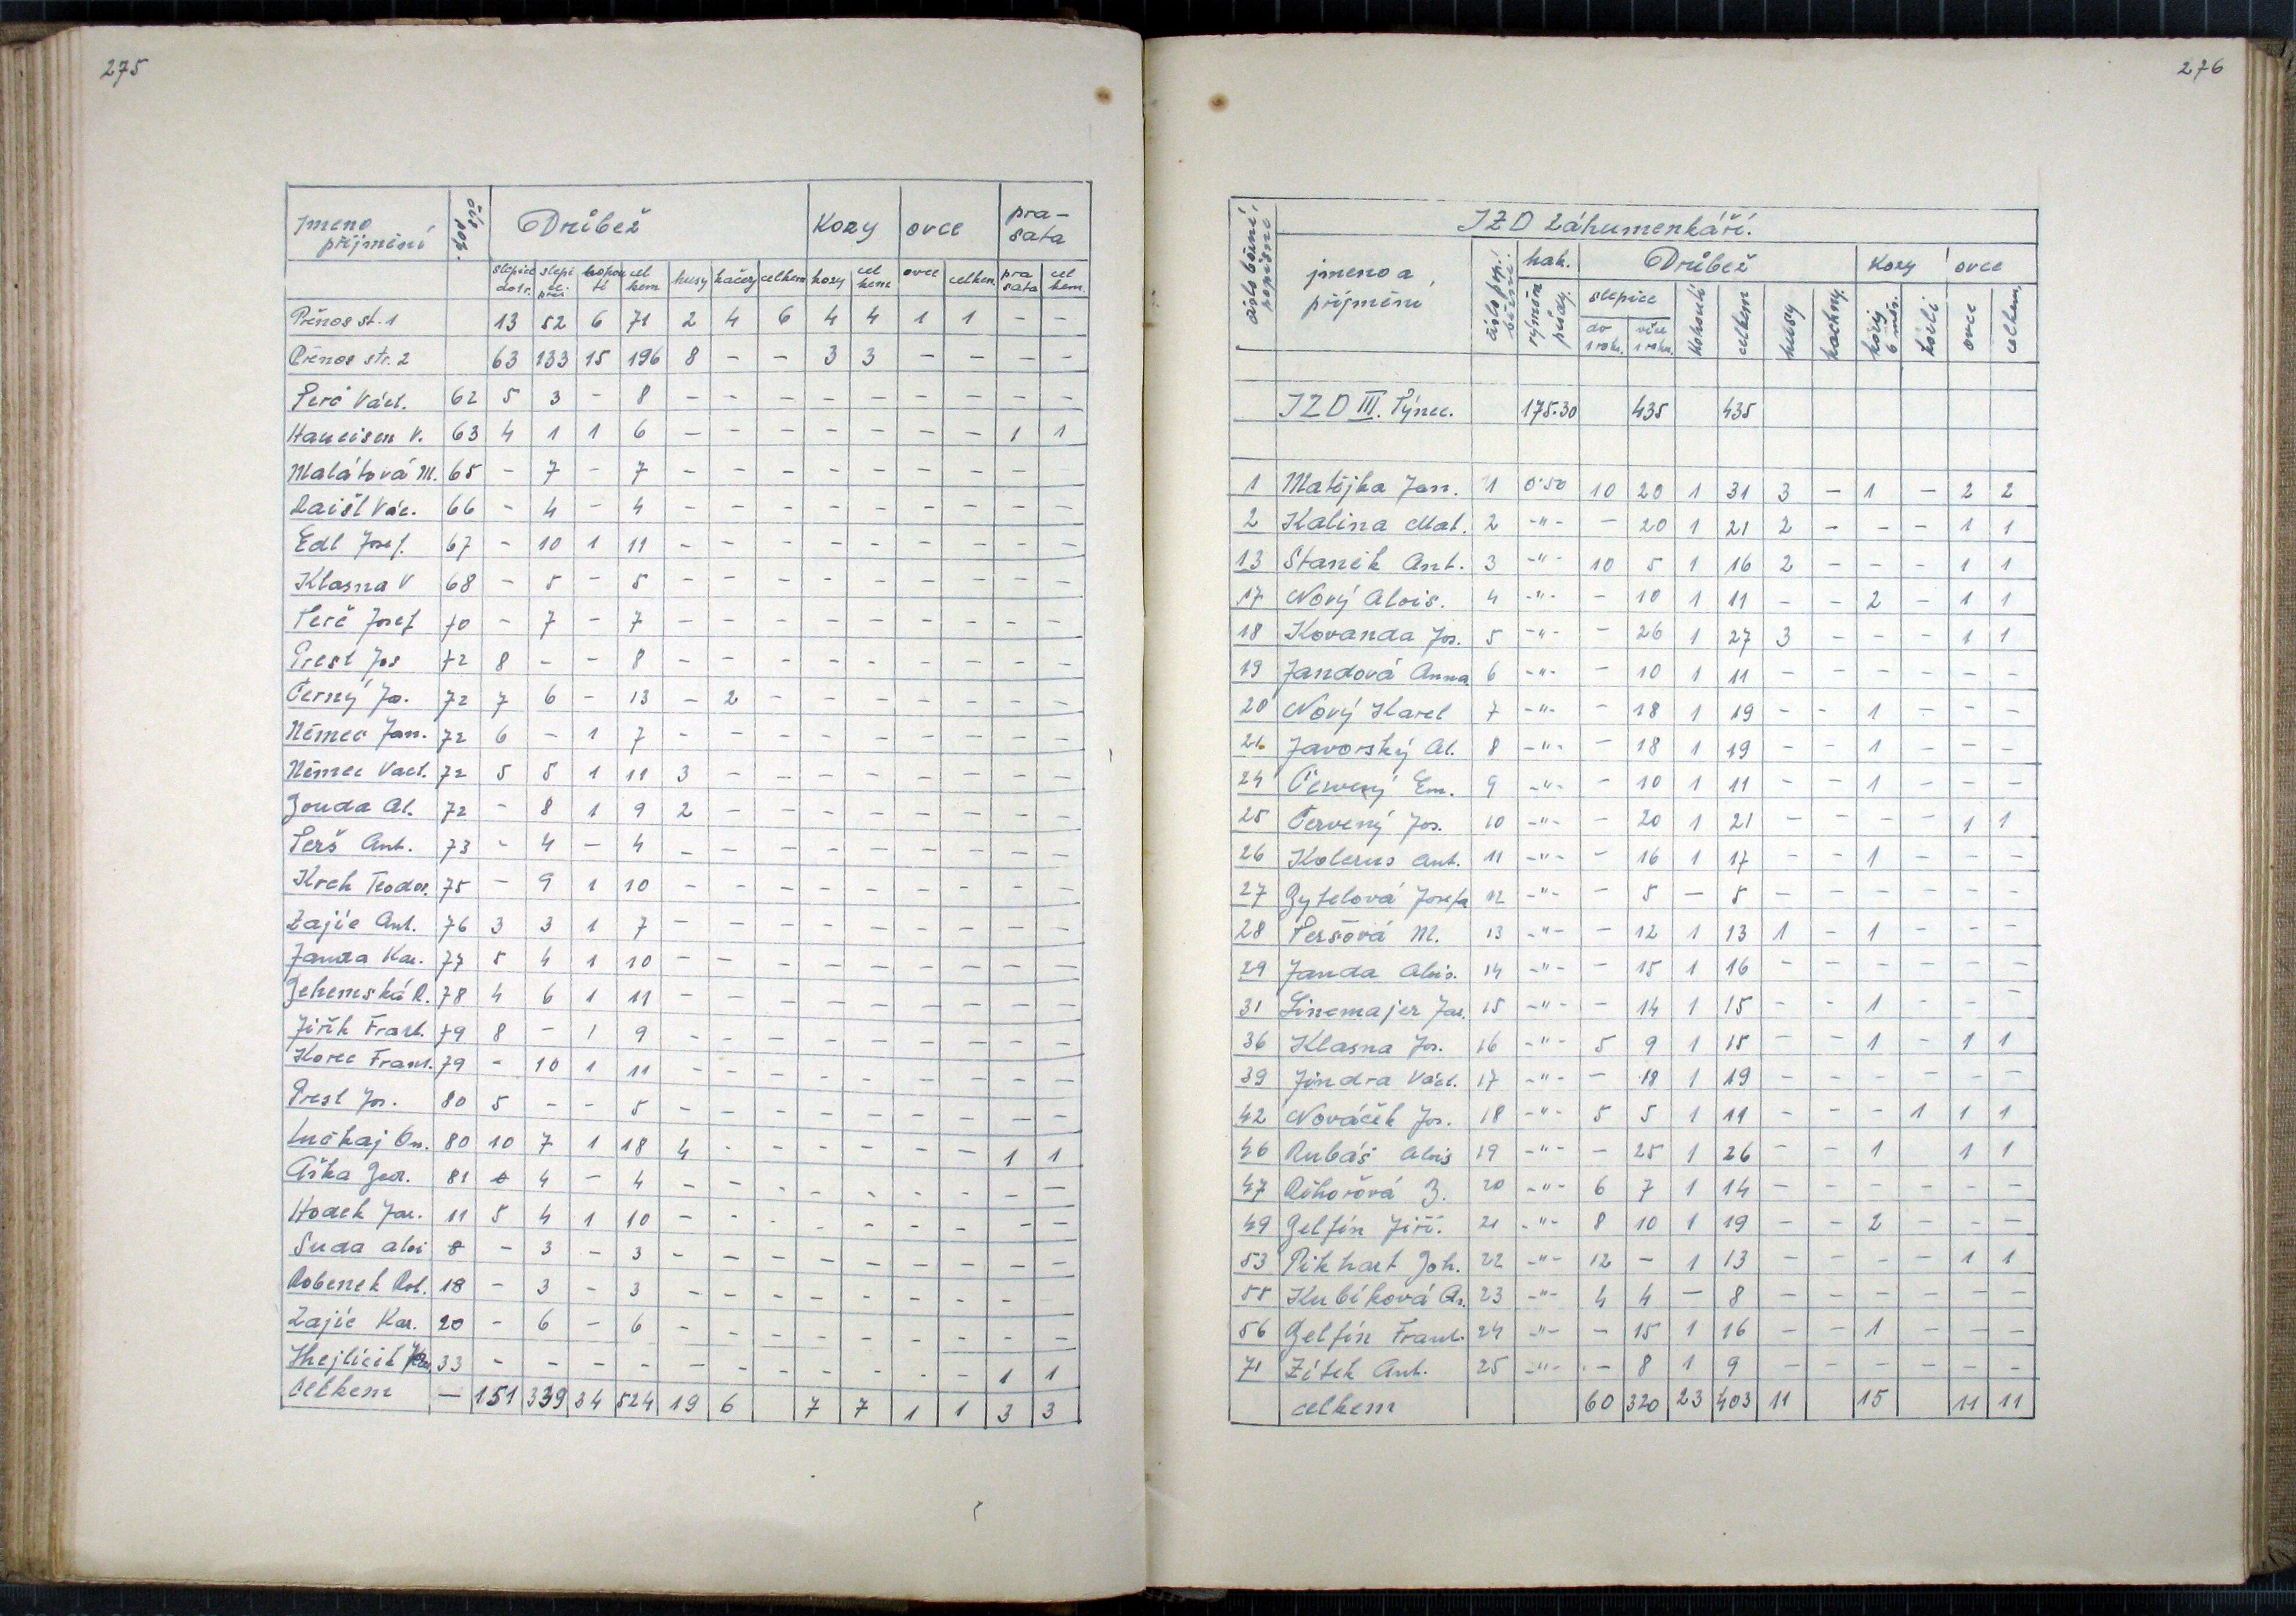 275
Jmeno přijmění číslo pop. Drůbež Kozy ovce pra-sata
slepice do 1 r. slepice přes kohouti celkem husy kačezy celkem kozy celkem ovce celkem prasata celkem
Přenos st. 1 13 52 6 71 2 4 6 4 4 1 1 - -
Přenos str. 2 63 133 15 196 8 - - 3 3 - - - -
Terč Václ. 62 5 3 - 8 - - - - - - - - -
Haucisen V. 63 4 1 1 6 - - - - - - - 1 1
Malátová M. 65 - 7 - 7 - - - - - - - -
Raišl Vác. 66 - 4 - 4 - - - - - - - - -
Edl Josef. 67 - 10 1 11 - - - - - - - - -
Klasna V 68 - 5 - 5 - - - - - - - - -
Terč Josef 70 - 7 - 7 - - - - - - - - -
Prest Jos 72 8 - - 8 - - - - - - - - -
Černý Jo. 72 7 6 - 13 - 2 - - - - - - -
Němec Jan. 72 6 - 1 7 - - - - - - - - -
Němec Vacl. 72 5 5 1 11 3 - - - - - - - -
Gouda Al. 72 - 8 1 9 2 - - - - - - - -
Terš Ant. 73 - 4 - 4 - - - - - - - - -
Krch Teodor. 75 - 9 1 10 - - - - - - - - -
Zajíc Ant. 76 3 3 1 7 - - - - - - - - -
Janda Kar. 77 5 4 1 10 - - - - - - - - -
Jehemská R. 78 4 6 1 11 - - - - - - - - -
Jiřík Frant. 79 8 - 1 9 - - - - - - - - -
Korec Frant. 79 - 10 1 11 - - - - - - - - -
Prest Jos. 80 5 - - 5 - - - - - - - - -
Lučkaj On. 80 10 7 1 18 4 - - - - - - 1 1
Čiška Geor. 81 4 - 4 - - - - - - - - -
Hodek Jar. 11 5 4 1 10 - - - - - - - - -
Suda aloi 8 - 3 - 3 - - - - - - - - -
Robenek Rob. 18 - 3 - 3 - - - - - - - -
Zajíc Kar. 20 - 6 - 6 - - - - - - - - -
33 - - - - - - - - - - - 1 1
Celkem - 151 339 34 524 19 6 7 7 1 1 3 3
276
číslo běžné, popisné JZD záhumenkáři.
jmeno a přijmění číslo pop. běžné. hak. výměra půdy. Drůbež kozy ovce
slepice do 1 roku. více 1 roku. kohouti celkem husy kachny. kozy 6 měs. kozli ovce celkem
JZD III. Týnec. 175.30 435 435
1 Matějka Jan. 1 0.50 10 20 1 31 3 - 1 - 2 2
2 Kalina Mat. 2 -"- - 20 1 21 2 - - - 1 1
13 Staněk Ant. 3 -"- 10 5 1 16 2 - - - 1 1
17 Nový Alois. 4 -"- - 10 1 11 - - 2 - 1 1
18 Kovanda Jos. 5 -"- - 26 1 27 3 - - - 1 1
19 Jandová Anna 6 -"- - 10 1 11 - - - - - -
20 Nový Karel 7 -"- - 18 1 19 - - 1 - - -
21. Javorský Al. 8 -"- - 18 1 19 - - 1 - - -
24 Červený Em. 9 -"- - 10 1 11 - - 1 - - -
25 Červený Jos. 10 -"- - 20 1 21 - - - - 1 1
26 Kolerus Ant. 11 -"- - 16 1 17 - - 1 - - -
27 Gytelová Josefa 12 -"- - 5 - 5 - - - - - -
28 Teršová M. 13 -"- - 12 1 13 1 - 1 - - -
29 Janda Alois. 14 -"- - 15 1 16 - - - - - -
31 Linemajer Jar. 15 -"- - 14 1 15 - - 1 - - -
36 Klasna Jos. 16 -"- 5 9 1 15 - - 1 - 1 1
39 Jindra Václ. 17 -"- - 18 1 19 - - - - - -
42 Nováček Jos. 18 -"- 5 5 1 11 - - - 1 1 1
46 Rubáš Alois 19 -"- - 25 1 26 - - 1 1 1
47 Řihořová B. 20 -"- 6 7 1 14 - - - - - -
49 Gelfín Jiří. 21 -"- 8 10 1 19 - - 2 - - -
53 Pikhart Joh. 22 -"- 12 - 1 13 - - - - 1 1
55 Kubíková An. 23 -"- 4 4 - 8 - - - - - -
56 Gelfín Frant. 24 -"- - 15 1 16 - - 1 - - -
71 Zítek Ant. 25 -"- - 8 1 9 - - - - - -
celkem 60 320 23 403 11 15 11 11